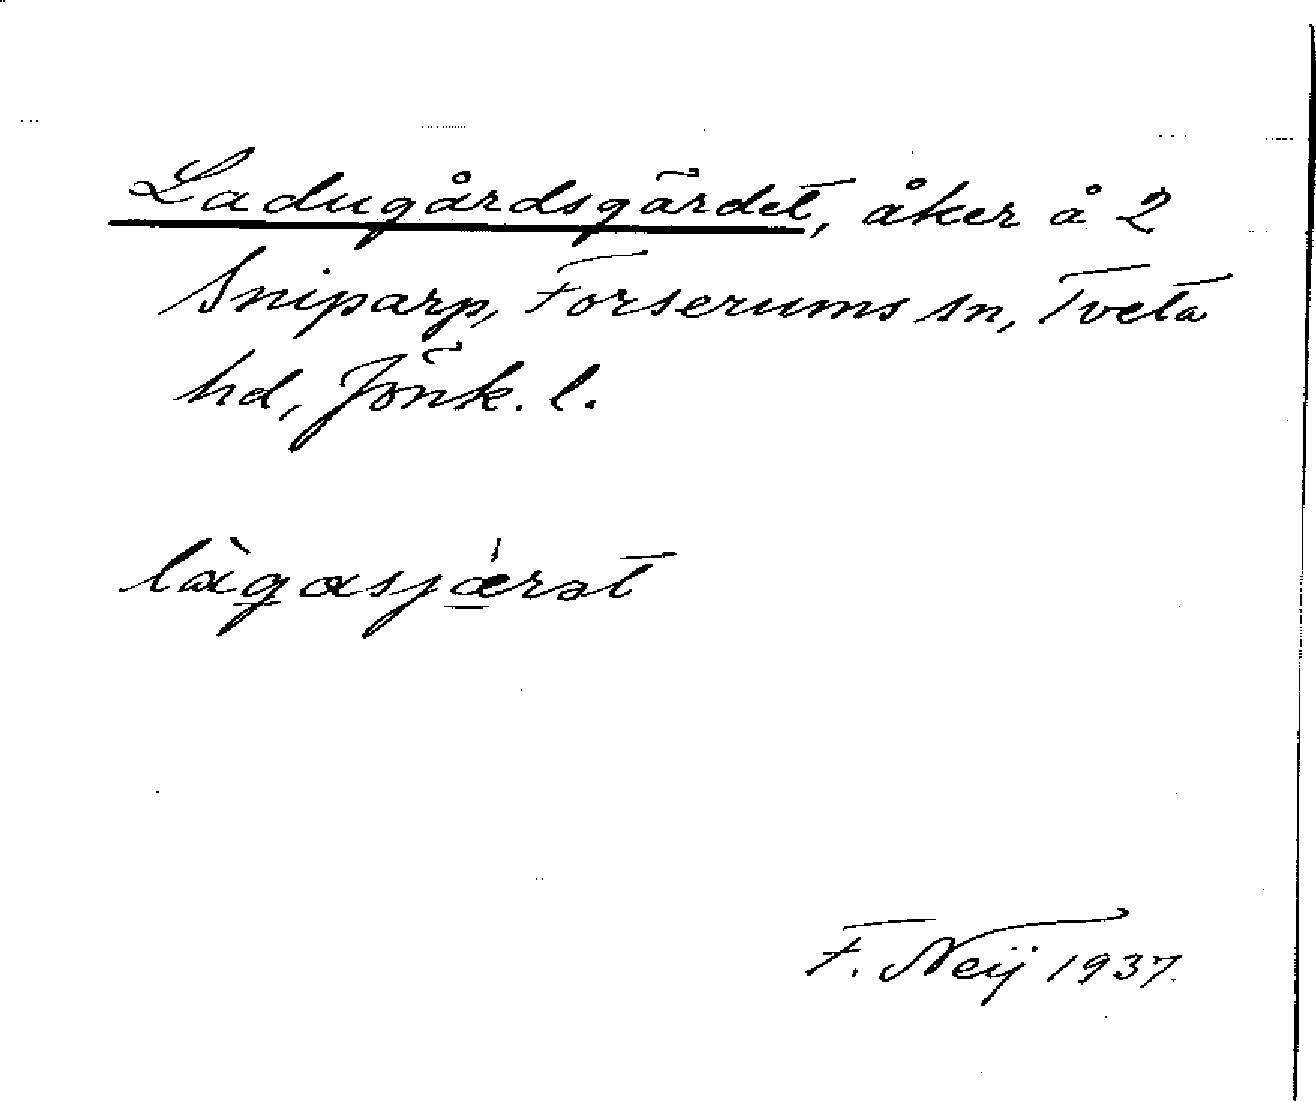 Ladugårdsgärdet, åker å 2
Sniparp, Forserums sn, Tveta
hd, Jönk. l.
làgasjæ̀rət
F. Neij 1937.